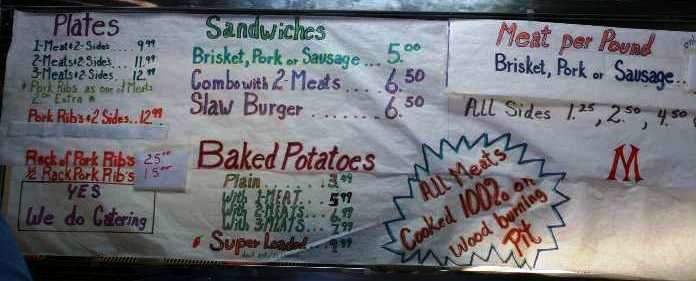 Plates
1-Meat & 2-Sides... 9.99
2-Meats & 2 Sides... 11.99
3-Meats & 2 Sides... 12.99
* Pork Ribs as one of Meats
Extra *
Pork Ribs & 2 Sides.. 12.99
Rack of Pork Ribs 25.00
½ Rack Pork Ribs 15.00
YES
We do Catering
Sandwiches
Brisket, Pork or Sausage... 5.00
Combo with 2-Meats..... 6.50
Slaw Burger........ 6.50
Baked Potatoes
Plain
With 1-MEAT.... 5.99
With 2-MEATS... 6.99
With 3-MEATS... 7.99
* Super Loaded... 9.99
All Meats
Cooked 100% on
wood burning
Pit
Meat per Pound
Brisket, Pork or Sausage..
All Sides 1.25, 2.50, 4.50
M